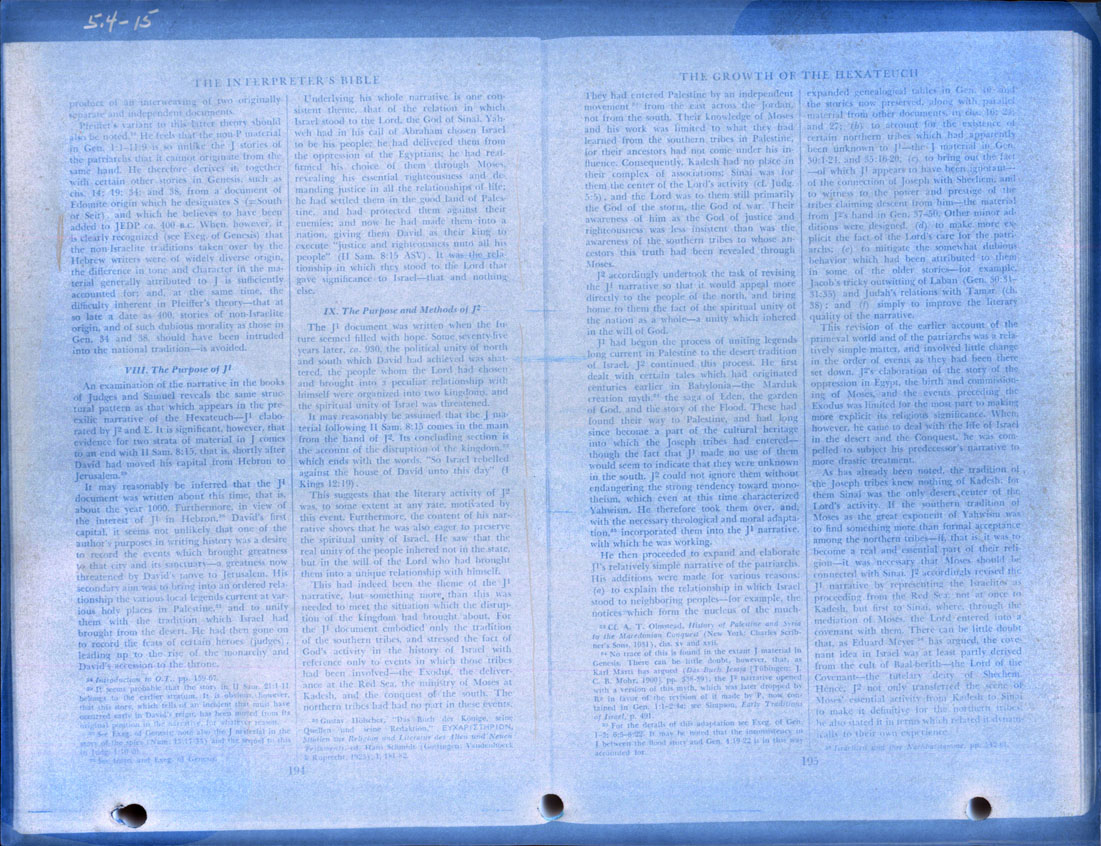 5.4-15
THE INTERPRETER'S BIBLE
product of an interweaving of two originally
separate and independent documents.
Pfeiffer's variant to this latter theory should
also be noted. He feels that the non-P material
in Gen. 1:1–11:9 is so unlike the J stories of
the patriarchs that it cannot originate from the
same hand. He therefore derives it, together
with certain other stories in Genesis, such as
chs. 14; 19; 34; and 38, from a document of
Edomite origin which he designates S (=South
or Seir), and which he believes to have been
added to JEDP ca. 400 B.C. When, however, it
is clearly recognized (see Exeg. of Genesis) that
the non-Israelite traditions taken over by the
Hebrew writers were of widely diverse origin,
the difference in tone and character in the ma-
terial generally attributed to J is sufficiently
accounted for; and, at the same time, the
difficulty inherent in Pfeiffer's theory—that at
so late a date as 400, stories of non-Israelite
origin, and of such dubious morality as those in
Gen. 34 and 38, should have been intruded
into the national tradition—is avoided.
VIII. The Purpose of J¹
An examination of the narrative in the books
of Judges and Samuel reveals the same struc-
tural pattern as that which appears in the pre-
exilic narrative of the Hexateuch—J¹ elabo-
rated by J² and E. It is significant, however, that
evidence for two strata of material in J comes
to an end with II Sam. 8:15, that is, shortly after
David had moved his capital from Hebron to
Jerusalem.
It may reasonably be inferred that the J¹
document was written about this time, that is,
about the year 1000. Furthermore, in view of
the interest of J¹ in Hebron, David's first
capital, it seems not unlikely that one of the
author's purposes in writing history was a desire
to record the events which brought greatness
to that city and its sanctuary—a greatness now
threatened by David's move to Jerusalem. His
secondary aim was to bring into an ordered rela-
tionship the various local legends current at var-
ious holy places in Palestine, and to unify
them with the tradition which Israel had
brought from the desert. He had then gone on
to record the feats of certain heroes (judges),
leading up to the rise of the monarchy and
David's accession to the throne.
Introduction to O.T., pp. 159-67.
It seems probable that the story in II Sam. 21:1-11
belongs to the earlier stratum. It is obvious, however,
that this story, which tells of an incident that must have
occurred early in David's reign, has been moved from its
original position in the narrative, for whatever reason.
See Exeg. of Genesis; note also the J material in the
story of the spies (Num. 13:17-33) and the sequel to this
in Judg. 1:10-20.
See Intro. and Exeg. of Genesis.
Underlying his whole narrative is one con-
sistent theme, that of the relation in which
Israel stood to the Lord, the God of Sinai. Yah-
weh had in his call of Abraham chosen Israel
to be his people; he had delivered them from
the oppression of the Egyptians; he had reaf-
firmed his choice of them through Moses,
revealing his essential righteousness and de-
manding justice in all the relationships of life;
he had settled them in the good land of Pales-
tine, and had protected them against their
enemies; and now he had made them into a
nation, giving them David as their king to
execute "justice and righteousness unto all his
people" (II Sam. 8:15 ASV). It was the rela-
tionship in which they stood to the Lord that
gave significance to Israel—that and nothing
else.
IX. The Purpose and Methods of J²
The J¹ document was written when the fu-
ture seemed filled with hope. Some seventy-five
years later, ca. 930, the political unity of north
and south which David had achieved was shat-
tered, the people whom the Lord had chosen
and brought into a peculiar relationship with
himself were organized into two kingdoms, and
the spiritual unity of Israel was threatened.
It may reasonably be assumed that the J ma-
terial following II Sam. 8:15 comes in the main
from the hand of J². Its concluding section is
the account of the disruption of the kingdom,
which ends with the words, "So Israel rebelled
against the house of David unto this day" (I
Kings 12:19).
This suggests that the literary activity of J²
was, to some extent at any rate, motivated by
this event. Furthermore, the content of his nar-
rative shows that he was also eager to preserve
the spiritual unity of Israel. He saw that the
real unity of the people inhered not in the state,
but in the will of the Lord who had brought
them into a unique relationship with himself.
This had indeed been the theme of the J¹
narrative, but something more than this was
needed to meet the situation which the disrup-
tion of the kingdom had brought about. For
the J¹ document embodied only the tradition
of the southern tribes, and stressed the fact of
God's activity in the history of Israel with
reference only to events in which those tribes
had been involved—the Exodus, the deliver-
ance at the Red Sea, the ministry of Moses at
Kadesh, and the conquest of the south. The
northern tribes had had no part in these events.
Gustav Hölscher, "Das Buch der Könige, seine
Quellen und seine Redaktion," ΕΥΧΑΡΙΣΤΗΡΙΟΝ,
Studien zur Religion und Literatur des Alten und Neuen
Testaments, ed. Hans Schmidt (Göttingen: Vandenhoeck
& Ruprecht, 1923), I, 181-82.
194
THE GROWTH OF THE HEXATEUCH
They had entered Palestine by an independent
movement from the east across the Jordan,
not from the south. Their knowledge of Moses
and his work was limited to what they had
learned from the southern tribes in Palestine,
for their ancestors had not come under his in-
fluence. Consequently, Kadesh had no place in
their complex of associations; Sinai was for
them the center of the Lord's activity (cf. Judg.
5:5), and the Lord was to them still primarily
the God of the storm, the God of war. Their
awareness of him as the God of justice and
righteousness was less insistent than was the
awareness of the southern tribes to whose an-
cestors this truth had been revealed through
Moses.
J² accordingly undertook the task of revising
the J¹ narrative so that it would appeal more
directly to the people of the north, and bring
home to them the fact of the spiritual unity of
the nation as a whole—a unity which inhered
in the will of God.
J¹ had begun the process of uniting legends
long current in Palestine to the desert tradition
of Israel. J² continued this process. He first
dealt with certain tales which had originated
centuries earlier in Babylonia—the Marduk
creation myth, the saga of Eden, the garden
of God, and the story of the Flood. These had
found their way to Palestine, and had long
since become a part of the cultural heritage
into which the Joseph tribes had entered—
though the fact that J¹ made no use of them
would seem to indicate that they were unknown
in the south. J² could not ignore them without
endangering the strong tendency toward mono-
theism, which even at this time characterized
Yahwism. He therefore took them over, and,
with the necessary theological and moral adapta-
tion, incorporated them into the J¹ narrative,
with which he was working.
He then proceeded to expand and elaborate
J¹'s relatively simple narrative of the patriarchs.
His additions were made for various reasons:
(a) to explain the relationship in which Israel
stood to neighboring peoples—for example, the
notices which form the nucleus of the much-
Cf. A. T. Olmstead, History of Palestine and Syria
to the Macedonian Conquest (New York: Charles Scrib-
ner's Sons, 1931), chs. xv and xvii.
No trace of this is found in the extant J material in
Genesis. There can be little doubt, however, that, as
Karl Marti has argued (Das Buch Jesaja [Tübingen: J.
C. B. Mohr, 1900], pp. 238-89), the J² narrative opened
with a version of this myth, which was later dropped by
RP in favor of the revision of it made by P, now con-
tained in Gen. 1:1–2:4a; see Simpson, Early Traditions
of Israel, p. 491.
For the details of this adaptation see Exeg. of Gen.
1-3; 6:5–8:22. It may be noted that the inconsistency in
J between the flood story and Gen. 4:19-22 is in this way
accounted for.
expanded genealogical tables in Gen. 10 and
the stories now preserved, along with parallel
material from other documents, in chs. 16; 25;
and 27; (b) to account for the existence of
certain northern tribes which had apparently
been unknown to J¹—the J material in Gen.
30:1-24, and 35:16-20; (c) to bring out the fact
—of which J¹ appears to have been ignorant—
of the connection of Joseph with Shechem, and
to witness to the power and prestige of the
tribes claiming descent from him—the material
from J²'s hand in Gen. 37–50. Other minor ad-
ditions were designed, (d) to make more ex-
plicit the fact of the Lord's care for the patri-
archs; (e) to mitigate the somewhat dubious
behavior which had been attributed to them
in some of the older stories—for example,
Jacob's tricky outwitting of Laban (Gen. 30:31–
31:35) and Judah's relations with Tamar (ch.
38); and (f) simply to improve the literary
quality of the narrative.
This revision of the earlier account of the
primeval world and of the patriarchs was a rela-
tively simple matter, and involved little change
in the order of events as they had been there
set down. J²'s elaboration of the story of the
oppression in Egypt, the birth and commission-
ing of Moses, and the events preceding the
Exodus was limited for the most part to making
more explicit its religious significance. When,
however, he came to deal with the life of Israel
in the desert and the Conquest, he was com-
pelled to subject his predecessor's narrative to
more drastic treatment.
As has already been noted, the tradition of
the Joseph tribes knew nothing of Kadesh, for
them Sinai was the only desert center of the
Lord's activity. If the southern tradition of
Moses as the great exponent of Yahwism was
to find something more than formal acceptance
among the northern tribes—if, that is, it was to
become a real and essential part of their reli-
gion—it was necessary that Moses should be
connected with Sinai. J² accordingly revised the
J¹ narrative by representing the Israelites as
proceeding from the Red Sea, not at once to
Kadesh, but first to Sinai, where, through the
mediation of Moses, the Lord entered into a
covenant with them. There can be little doubt
that, as Eduard Meyer has argued, the cove-
nant idea in Israel was at least partly derived
from the cult of Baal-berith—the Lord of the
Covenant—the tutelary deity of Shechem.
Hence, J² not only transferred the scene of
Moses' essential activity from Kadesh to Sinai
to make it definitive for the northern tribes;
he also stated it in terms which related it dynam-
ically to their own experience.
Israeliten und ihre Nachbarstämme, pp. 542-61.
195